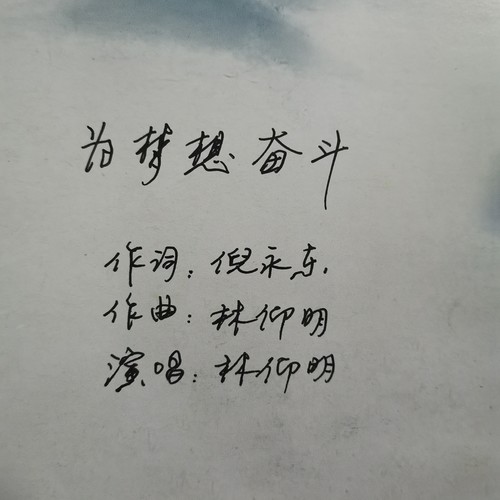 为梦想奋斗
作词：倪永东.
作曲：林仰明
演唱：林仰明